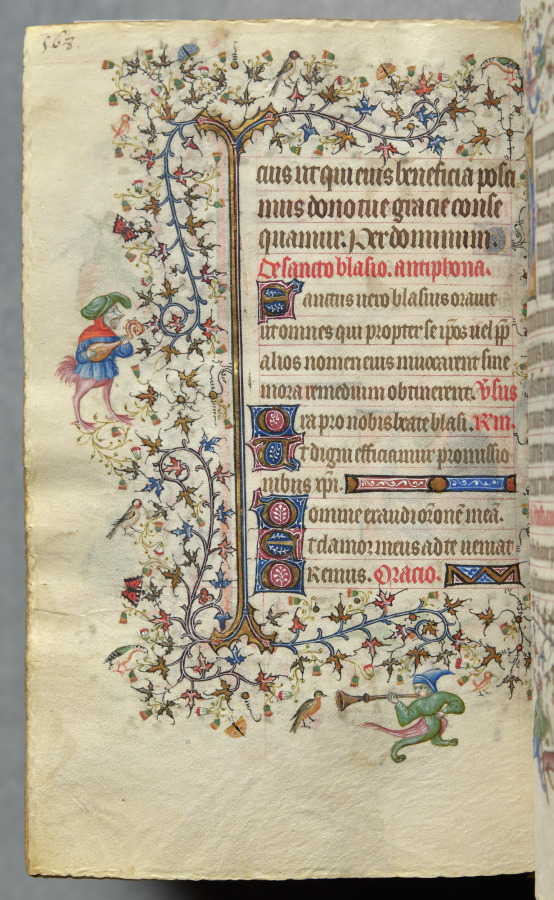 563.
cuius ut qui eius beneficia posci
mus dono tue gracie conse
quamur. Per dominum.
De sancto blasio. antiphona.
Sanctus uero blasius orauit
ut omnes qui propter se ip̄os uel pp̄
alios nomen eius inuocarent sine
mora remedium obtinerent. V̄sus
Ora pro nobis beate blasi. Rm̄.
Et digni efficiamur promissio
nibus xp̄i.
Domine exaudi or̄onē meā.
Et clamor meus ad te ueniat
Oremus. Oracio.